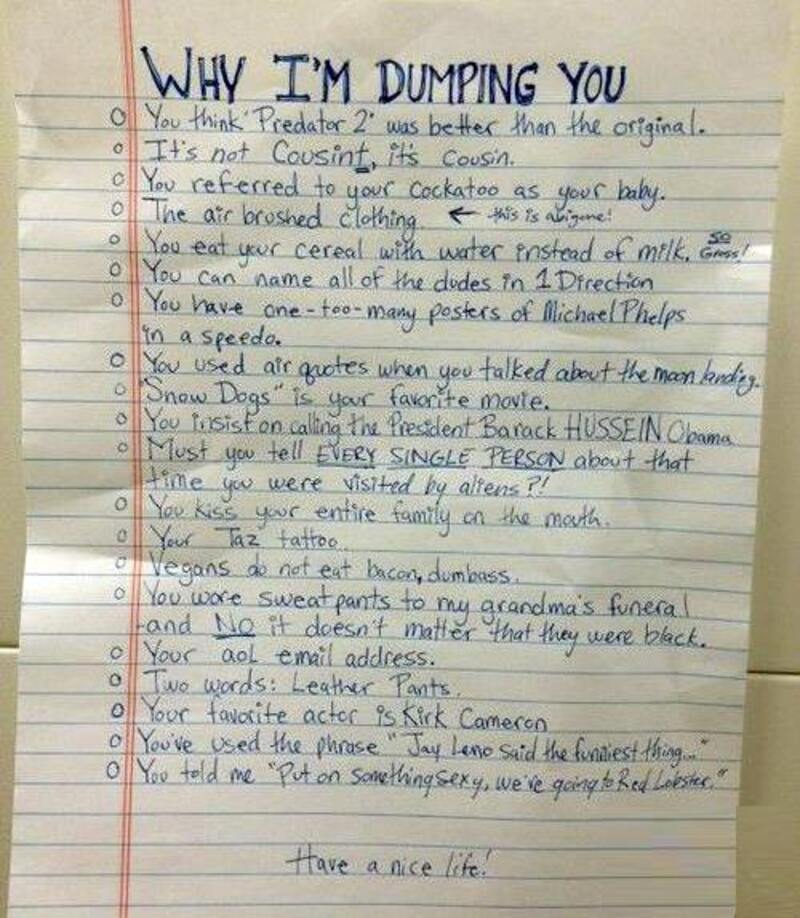 WHY I'M DUMPING YOU
You think "Predator 2" was better than the original.
It's not Cousint, it's cousin.
You referred to your cockatoo as your baby.
The air brushed clothing. ← this is a bigone!
You eat your cereal with water instead of milk. SO Gross!
You can name all of the dudes in 1 Direction
You have one-too-many posters of Michael Phelps
in a speedo.
You used air quotes when you talked about the moon landing.
"Snow Dogs" is your favorite movie.
You insist on calling the President Barack HUSSEIN Obama
Must you tell EVERY SINGLE PERSON about that
time you were visited by aliens?!
You kiss your entire family on the mouth.
Your Taz tattoo.
Vegans do not eat bacon, dumbass.
You wore sweatpants to my grandma's funeral
-and NO it doesn't matter that they were black.
Your aol email address.
Two words: Leather Pants.
Your favorite actor is Kirk Cameron
You've used the phrase "Jay Leno said the funniest thing..."
You told me "Put on something sexy, we're going to Red Lobster."
Have a nice life!